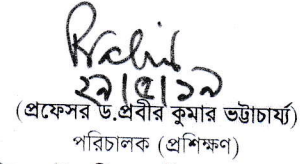 ২৯/৫/১৯
(প্রফেসর ড.প্রবীর কুমার ভট্টাচার্য্য)
পরিচালক (প্রশিক্ষণ)